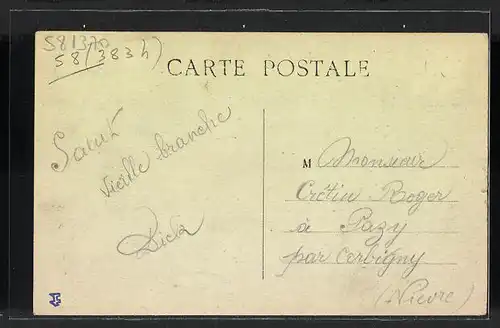 581370
58(383h)
CARTE POSTALE
Salut
vieille branche
Dick
M Monsieur
Crétin Roger
à Pazy
par Corbigny
(Nièvre)